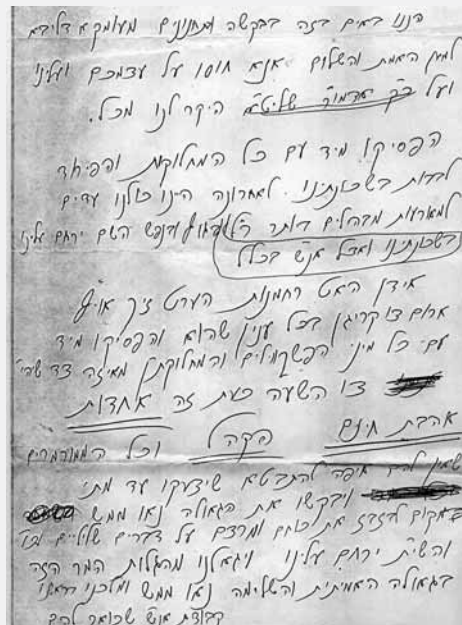 הננו באים בזה בבקשה ותחנונים מעומקא דליבא
למען האמת והשלום אנא חוסו על עצמכם ועלינו
ועל כ"ק אדמו"ר שליט"א היקר לנו מכל.
הפסיקו מיד עם כל המחלוקת והפירוד
לבבות בשכונתינו. לאחרונה היינו כולנו עדים
למאורעות מבהילים ביותר ר"ל בגוף ובנפש השם ירחם עלינו
בשכונתינו ואצל אנ"ש בכלל
אידן האט רחמנות הערט זיך אויף
ארום צו קריגן בכל ענין שהוא והפסיקו מיד
עם כל מיני הפשקווילים והמחלוקת מאיזה צד שהוא
צו השעה כעת זה אחדות
אהבת חינם הקהל וכל הממורמרים
שאין להם איפה להתבטא שיצעקו עד מתי
ויבקשו את הגאולה נאו ממש
במקום לבזבז את כוחם ומרצם על דברים שליליים וכו'
והשי"ת ירחם עלינו ויגאלנו מהגלות המר הזה
בגאולה האמיתית והשלימה נאו ממש ומלכנו בראשנו
קבוצת אנ"ש שכואב להם